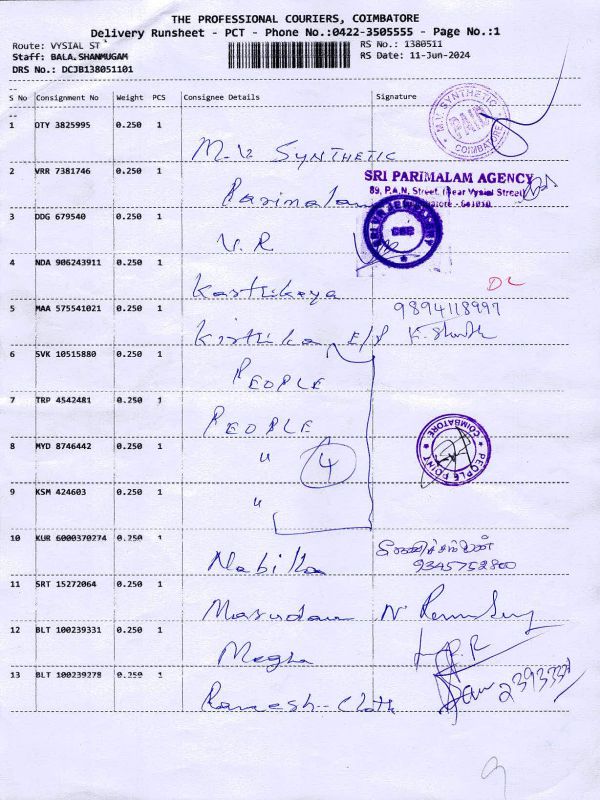 THE PROFESSIONAL COURIERS, COIMBATORE
Delivery Runsheet - PCT - Phone No.:0422-3505555 - Page No.:1
Route: VYSIAL ST
RS No.: 1380511
Staff: BALA.SHANMUGAM
RS Date: 11-Jun-2024
DRS No.: DCJB138051101
S No Consignment No Weight PCS Consignee Details Signature
1 OTY 3825995 0.250 1
M.V. SYNTHETIC COIMBATORE
M.V SYNTHETIC
2 VRR 7381746 0.250 1
SRI PARIMALAM AGENCY
89, P.A.N. Street, (Near Vysial Street)
Parimalam
3 DDG 679540 0.250 1
V.R
4 NDA 906243911 0.250 1
Karthikeya
DL
5 MAA 575541021 0.250 1
9894118997
E/P
6 SVK 10515880 0.250 1
PEOPLE
7 TRP 4542481 0.250 1
PEOPLE
8 MYD 8746442 0.250 1
" 4
PEOPLE POINT COIMBATORE
9 KSM 424603 0.250 1
"
10 KUR 6000370274 0.250 1
Nabika
9345752800
11 SRT 15272064 0.250 1
12 BLT 100239331 0.250 1
Megha
13 BLT 100239278 0.250 1
Ramesh - Cloth